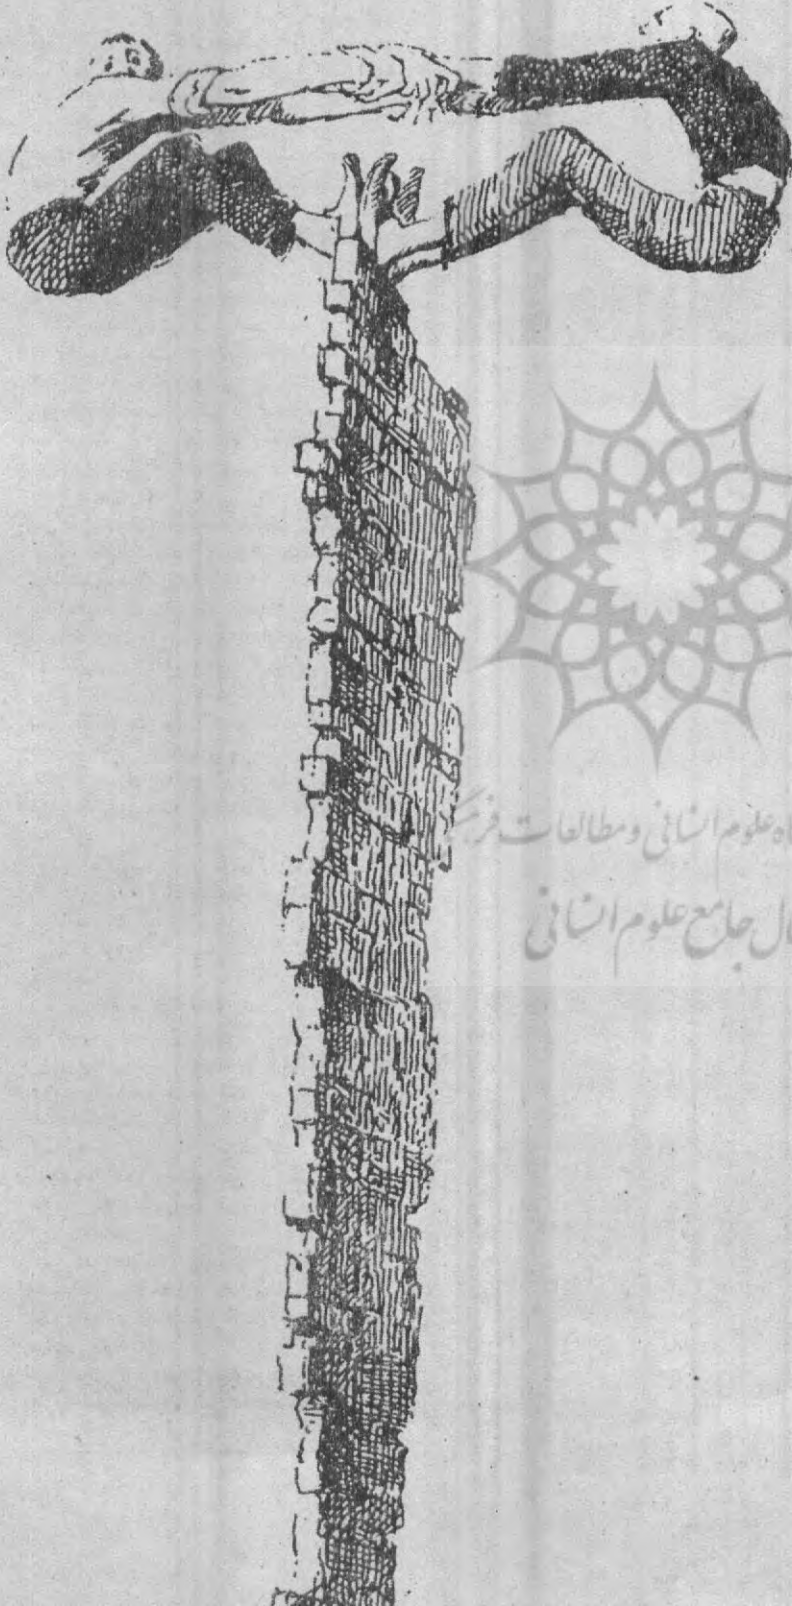 اه علوم انسانی و مطالعات فرہنگ
ال جامع علوم انسانی